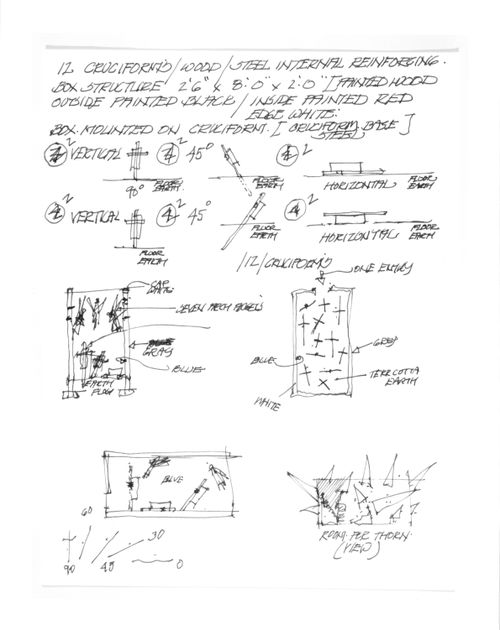 12 CRUCIFORMS/WOOD/STEEL INTERNAL REINFORCING.
BOX STRUCTURE 2'6" x 8'0" x 2'0" [PAINTED WOOD
OUTSIDE PAINTED BLACK/INSIDE PAINTED RED
EDGE WHITE.
BOX MOUNTED ON CRUCIFORM. [CRUCIFORM BASE
STEEL]
2 VERTICAL 2 45° 2
FLOOR
EARTH
90°
FLOOR
EARTH
HORIZONTAL
FLOOR
EARTH
4 2 VERTICAL 4 2 45° 4 2
FLOOR
EARTH
FLOOR
EARTH
HORIZONTAL
FLOOR
EARTH
/12/CRUCIFORMS
ONE ENTRY
SEVEN MECH
GRAY
BLUE
EARTH
BLUE
GREY
TERRCOTTA
EARTH
WHITE
BLUE
60
30
90
45
0
ROOM FOR THORN.
(VIEW)